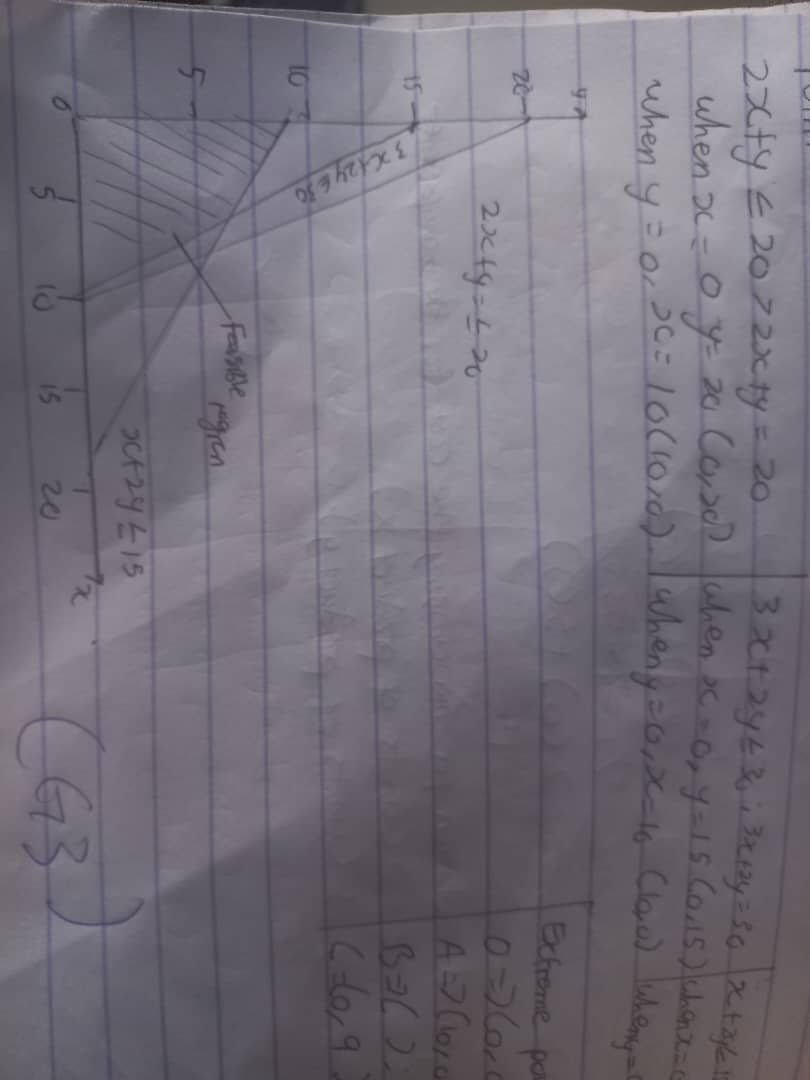 2x+y ≤ 20 > 2x+y = 20
when x = 0 y = 20 (0,20)
when y = 0, x = 10 (10,0).
3x+2y ≤ 30; 3x+2y = 30
when x = 0, y = 15 (0,15)
when y = 0, x = 10 (10,0)
when x =
when y =
y
20
15
10
5
0
5
10
15
20
x
3x+2y ≤ 30
2x+y = ≤ 20
Feasible
region
x+2y ≤ 15
Extreme
O ⇒ (0,
A ⇒ (10,
B ⇒ ( )
C = (0, 9
(G3)